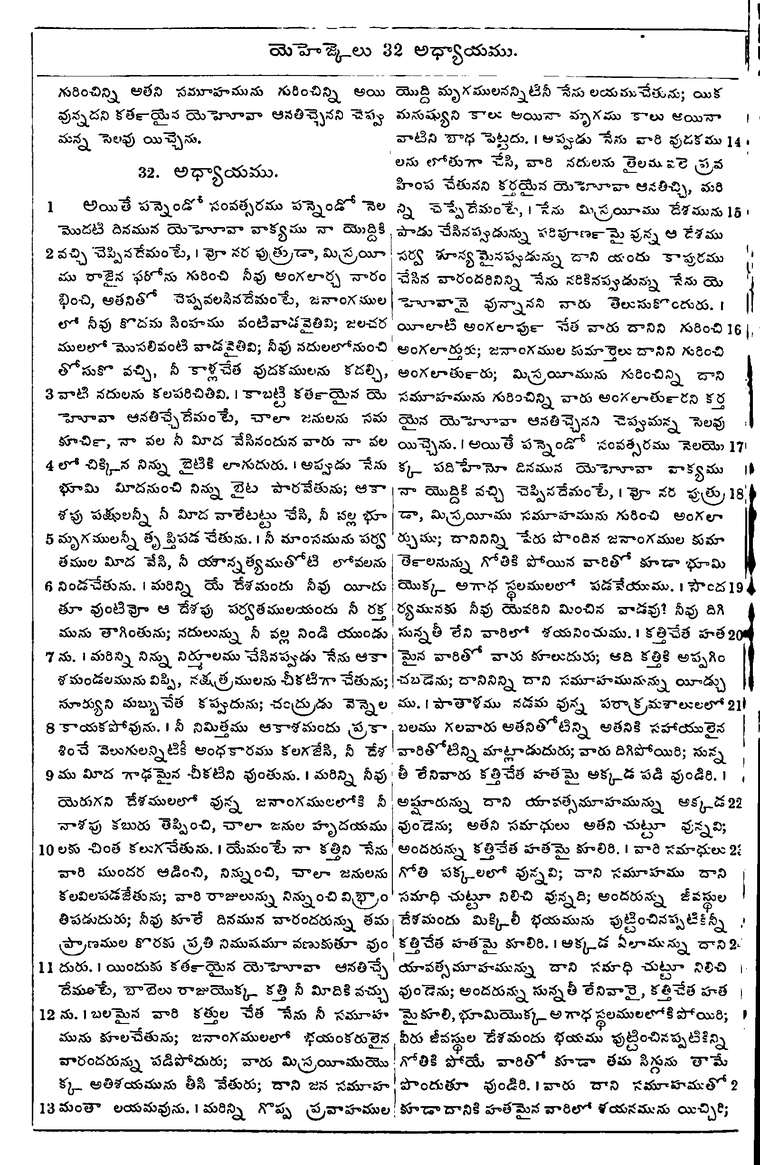 యెహెజ్కేలు 32 అధ్యాయము.
గురించిన్ని అతని సమూహమును గురించిన్ని అయి
వున్నదని కర్తయైన యెహోవా ఆనతిచ్చెనని చెప్పు
మన్న సెలవు యిచ్చెను.
32. అధ్యాయము.
1 అయితే పన్నెండో సంవత్సరము పన్నెండో నెల
మొదటి దినమున యెహోవా వాక్యము నా యొద్దికి
2 వచ్చి చెప్పినదేమంటే, । వోా నర పుత్రుడా, మిస్రయీ
ము రాజైన ఫరోను గురించి నీవు అంగలార్చ నారం
భించి, అతనితో చెప్పవలసినదేమంటే, జనాంగముల
లో నీవు కొదను సింహము వంటివాడవైతివి; జలచర
ములలో మొసలివంటి వాడవైతివి; నీవు నదులలోనుంచి
తోసుకొ వచ్చి, నీ కాళ్లచేత వుదకములను కదల్చి,
3 వాటి నదులను కలపరిచితివి. । కాబట్టి కర్తయైన యె
హోవా ఆనతిచ్చేదేమంటే, చాలా జనులను సమ
కూర్చి, నా వల నీ మీద వేసినందున వారు నా వల
4 లో చిక్కిన నిన్ను బైటికి లాగుదురు. । అప్పుడు నేను
భూమి మీదనుంచి నిన్ను బైట పారవేతును; ఆకా
శపు పక్షులన్నీ నీ మీద వాలేటట్టు చేసి, నీ వల్ల భూ
5 మృగములన్నీ తృప్తిపడ చేతును. । నీ మాంసమును పర్వ
తముల మీద వేసి, నీ యౌన్నత్యముతోటి లోవలను
6 నిండచేతును. । మరిన్ని యే దేశమందు నీవు యీదు
తూ వుంటివో ఆ దేశపు పర్వతములయందు నీ రక్త
మును తాగింతును; నదులున్ను నీ వల్ల నిండి యుండు
7 ను. । మరిన్ని నిన్ను నిర్మూలము చేసినప్పుడు నేను ఆకా
శమండలమును విప్పి, నక్షత్రములను చీకటిగా చేతును;
సూర్యుని మబ్బుచేత కప్పుదును; చంద్రుడు వెన్నెల
8 కాయకపోవును. । నీ నిమిత్తము ఆకాశమందు ప్రకా
శించే వెలుగులన్నిటికీ అంధకారము కలగజేసి, నీ దేశ
9 ము మీద గాఢమైన చీకటిని వుంతును. । మరిన్ని నీవు
యెరుగని దేశములలో వున్న జనాంగములలోకి నీ
నాశపు కబురు తెప్పించి, చాలా జనుల హృదయము
10 లకు చింత కలుగచేతును. । యేమంటే నా కత్తిని నేను
వారి ముందర ఆడించి, నిన్నుంచి, చాలా జనులను
కలవిలపడజేతును; వారి రాజులున్ను నిన్నుంచి విభ్రాం
తిపడుదురు; నీవు కూలే దినమున వారందరున్ను తమ
ప్రాణముల కొరకు ప్రతి నిముషమూ వణుకుతూ వుం
11 దురు. । యిందుకు కర్తయైన యెహోవా ఆనతిచ్చే
దేమంటే, బాబెలు రాజుయొక్క కత్తి నీ మీదికి వచ్చు
12 ను. । బలమైన వారి కత్తుల చేత నేను నీ సమూహ
మును కూలచేతును; జనాంగములలో భయంకరులైన
వారందరున్ను పడిపోదురు; వారు మిస్రయీముయొ
క్క అతిశయమును తీసి వేతురు; దాని జన సమూహ
13 మంతా లయమవును. । మరిన్ని గొప్ప ప్రవాహముల
యొద్ది మృగములనన్నిటినీ నేను లయముచేతును; యిక
మనుష్యుని కాలు అయినా మృగము కాలు అయినా
వాటిని బాధ పెట్టదు. । అప్పుడు నేను వారి వుదకము 14
లను లోతుగా చేసి, వారి నదులను తైలము వలె ప్రవ
హింప చేతునని కర్తయైన యెహోవా ఆనతిచ్చి, మరి
న్ని చెప్పేదేమంటే, । నేను మిస్రయీము దేశమును 15
పాడు చేసినప్పుడున్ను పరిపూర్ణమై వున్న ఆ దేశము
సర్వ శూన్యమైనప్పుడున్ను దాని యందు కాపురము
చేసిన వారందరినిన్ని నేను నరికినప్పుడున్ను నేను యె
హోవానై వున్నానని వారు తెలుసుకొందురు. ।
యీలాటి అంగలార్పు చేత వారు దానిని గురించి 16
అంగలార్తురు; జనాంగముల కుమార్తెలు దానిని గురించి
అంగలార్తురు; మిస్రయీమును గురించిన్ని దాని
సమూహమును గురించిన్ని వారు అంగలార్తురని కర్త
యైన యెహోవా ఆనతిచ్చెనని చెప్పుమన్న సెలవు
యిచ్చెను. । అయితే పన్నెండో సంవత్సరము నెలయొ 17
క్క పదిహేనో దినమున యెహోవా వాక్యము
నా యొద్దికి వచ్చి చెప్పినదేమంటే, । వోా నర పుత్రు 18
డా, మిస్రయీము సమూహమును గురించి అంగలా
ర్చుము; దానినిన్ని పేరు పొందిన జనాంగముల కుమా
ర్తెలనున్ను గోతికి పోయిన వారితో కూడా భూమి
యొక్క అగాధ స్థలములలో పడవేయుము. । సౌంద 19
ర్యమునకు నీవు యెవరిని మించిన వాడవు? నీవు దిగి
సున్నతీ లేని వారిలో శయనించుము. । కత్తిచేత హత 20
మైన వారితో వారు కూలుదురు; అది కత్తికి అప్పగిం
చబడెను; దానినిన్ని దాని సమూహమునున్ను యీడ్చు
ము. । పాతాళము నడమ వున్న పరాక్రమశాలులలో 21
బలము గలవారు అతనితోటిన్ని అతనికి సహాయులైన
వారితోటిన్ని మాట్లాడుదురు; వారు దిగిపోయిరి; సున్న
తీ లేనివారు కత్తిచేత హతమై అక్కడ పడి వుండిరి. ।
అష్షూరున్ను దాని యావత్సమూహమున్ను అక్కడ 22
వుండెను; అతని సమాధులు అతని చుట్టూ వున్నవి;
అందరున్ను కత్తిచేత హతమై కూలిరి. । వారి సమాధులు 23
గోతి పక్కలలో వున్నవి; దాని సమూహము దాని
సమాధి చుట్టూ నిలిచి వున్నది; అందరున్ను జీవస్థుల
దేశమందు మిక్కిలీ భయమును పుట్టించినప్పటికిన్నీ
కత్తిచేత హతమై కూలిరి. । అక్కడ ఏలామున్ను దాని 2
యావత్సమూహమున్ను దాని సమాధి చుట్టూ నిలిచి
వుండెను; అందరున్ను సున్నతీ లేనివారై, కత్తిచేత హత
మైకూలి, భూమియొక్క అగాధ స్థలములలోకి పోయిరి;
వీరు జీవస్థుల దేశమందు భయము పుట్టించినప్పటికిన్ని
గోతికి పోయే వారితో కూడా తమ సిగ్గును తామే
పొందుతూ వుండిరి. । వారు దాని సమూహముతో 2
కూడా దానికి హతమైన వారిలో శయనమును యిచ్చిరి;